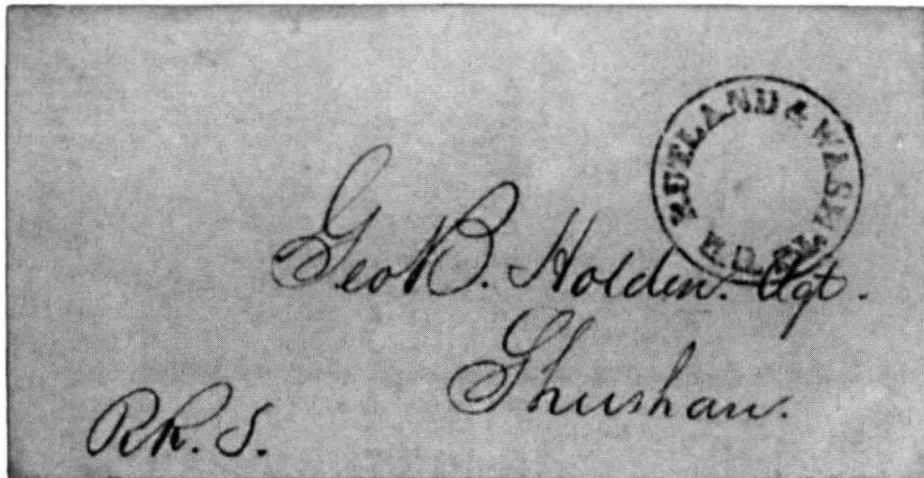 RUTLAND & WASH'N R.R.
Geo B. Holden. Agt.
Shushan.
RR. S.